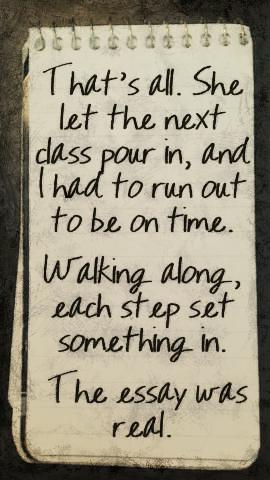 That's all. She
let the next
class pour in, and
I had to run out
to be on time.
Walking along,
each step set
something in.
The essay was
real.